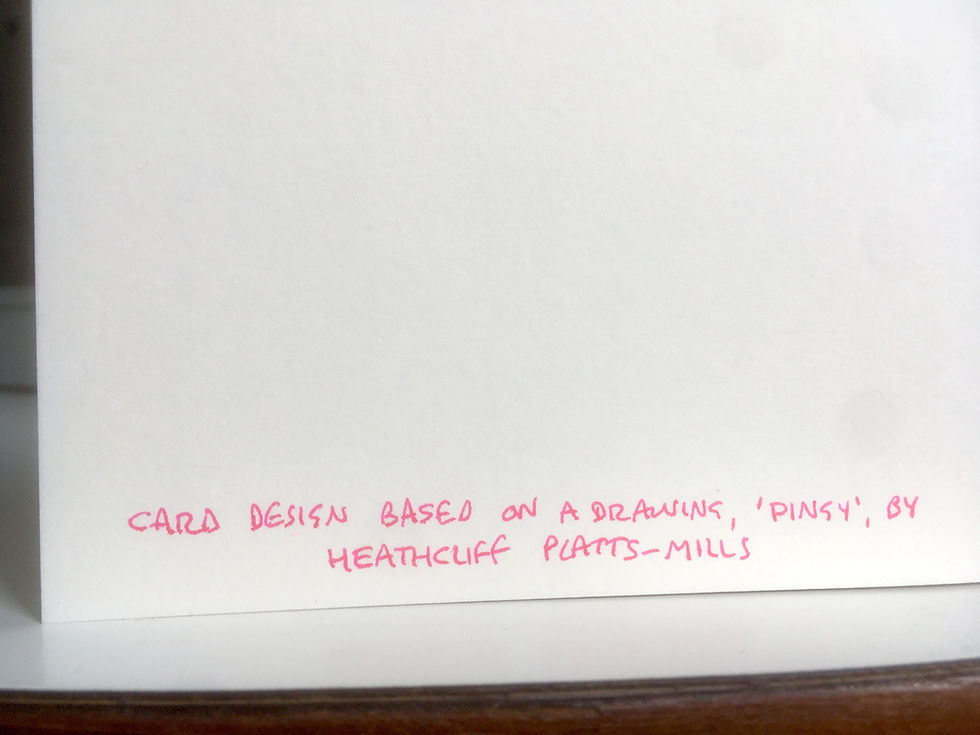 CARD DESIGN BASED ON A DRAWING, 'PINGY', BY
HEATHCLIFF PLATTS-MILLS